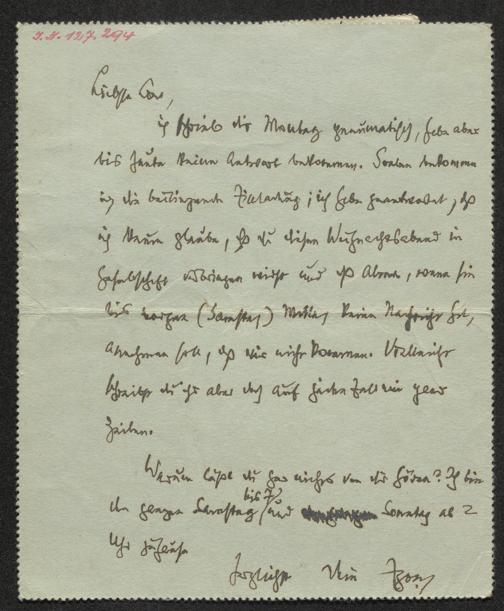 I.N. 127.294
Liebste Eva,
ich schrieb dir Montag pneumatisch, habe aber
bis heute keine Antwort bekommen. Soeben bekomme
ich die beiliegende Einladung; ich habe geantwortet, daß
ich kaum glaube, daß du diesen Weihnachtsabend in
Gesellschaft verbringen wirst und daß, wenn sie
bis morgen (Samstag) Mittag keine Nachricht hat,
annehmen soll, daß wir nicht kommen. Vielleicht
schreibst du ihr aber doch auf jeden Fall ein paar
Zeilen.
Warum läßt du gar nichts von dir hören? Ich bin
den ganzen Samstag bis 7h und Sonntag ab 2
Uhr zuhause
Herzlichst Dein